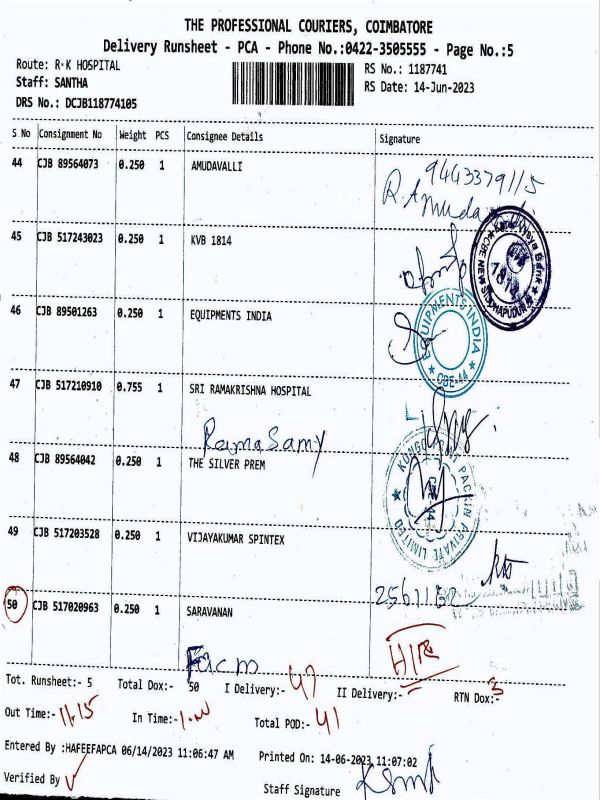 THE PROFESSIONAL COURIERS, COIMBATORE
Delivery Runsheet - PCA - Phone No.:0422-3505555 - Page No.:5
Route: R-K HOSPITAL
RS No.: 1187741
Staff: SANTHA
RS Date: 14-Jun-2023
DRS No.: DCJB118774105
S No Consignment No Weight PCS Consignee Details Signature
44 CJB 89564073 0.250 1 AMUDAVALLI
9443379115
R. Amuda
45 CJB 517243023 0.250 1 KVB 1814
46 CJB 89501263 0.250 1 EQUIPMENTS INDIA
EQUIPMENTS INDIA
CBE-44
47 CJB 517210910 0.755 1 SRI RAMAKRISHNA HOSPITAL
Ramasamy
48 CJB 89564042 0.250 1 THE SILVER PREM
PACKIN PRIVATE LIMITED
49 CJB 517203528 0.250 1 VIJAYAKUMAR SPINTEX
50 CJB 517020963 0.250 1 SARAVANAN
Tot. Runsheet:- 5 Total Dox:- 50 I Delivery:- 47 II Delivery:- RTN Dox:- 3
Out Time:- 11.15 In Time:- 1.00 Total POD:- 41
Entered By :HAFEEFAPCA 06/14/2023 11:06:47 AM Printed On: 14-06-2023 11:07:02
Verified By
Staff Signature